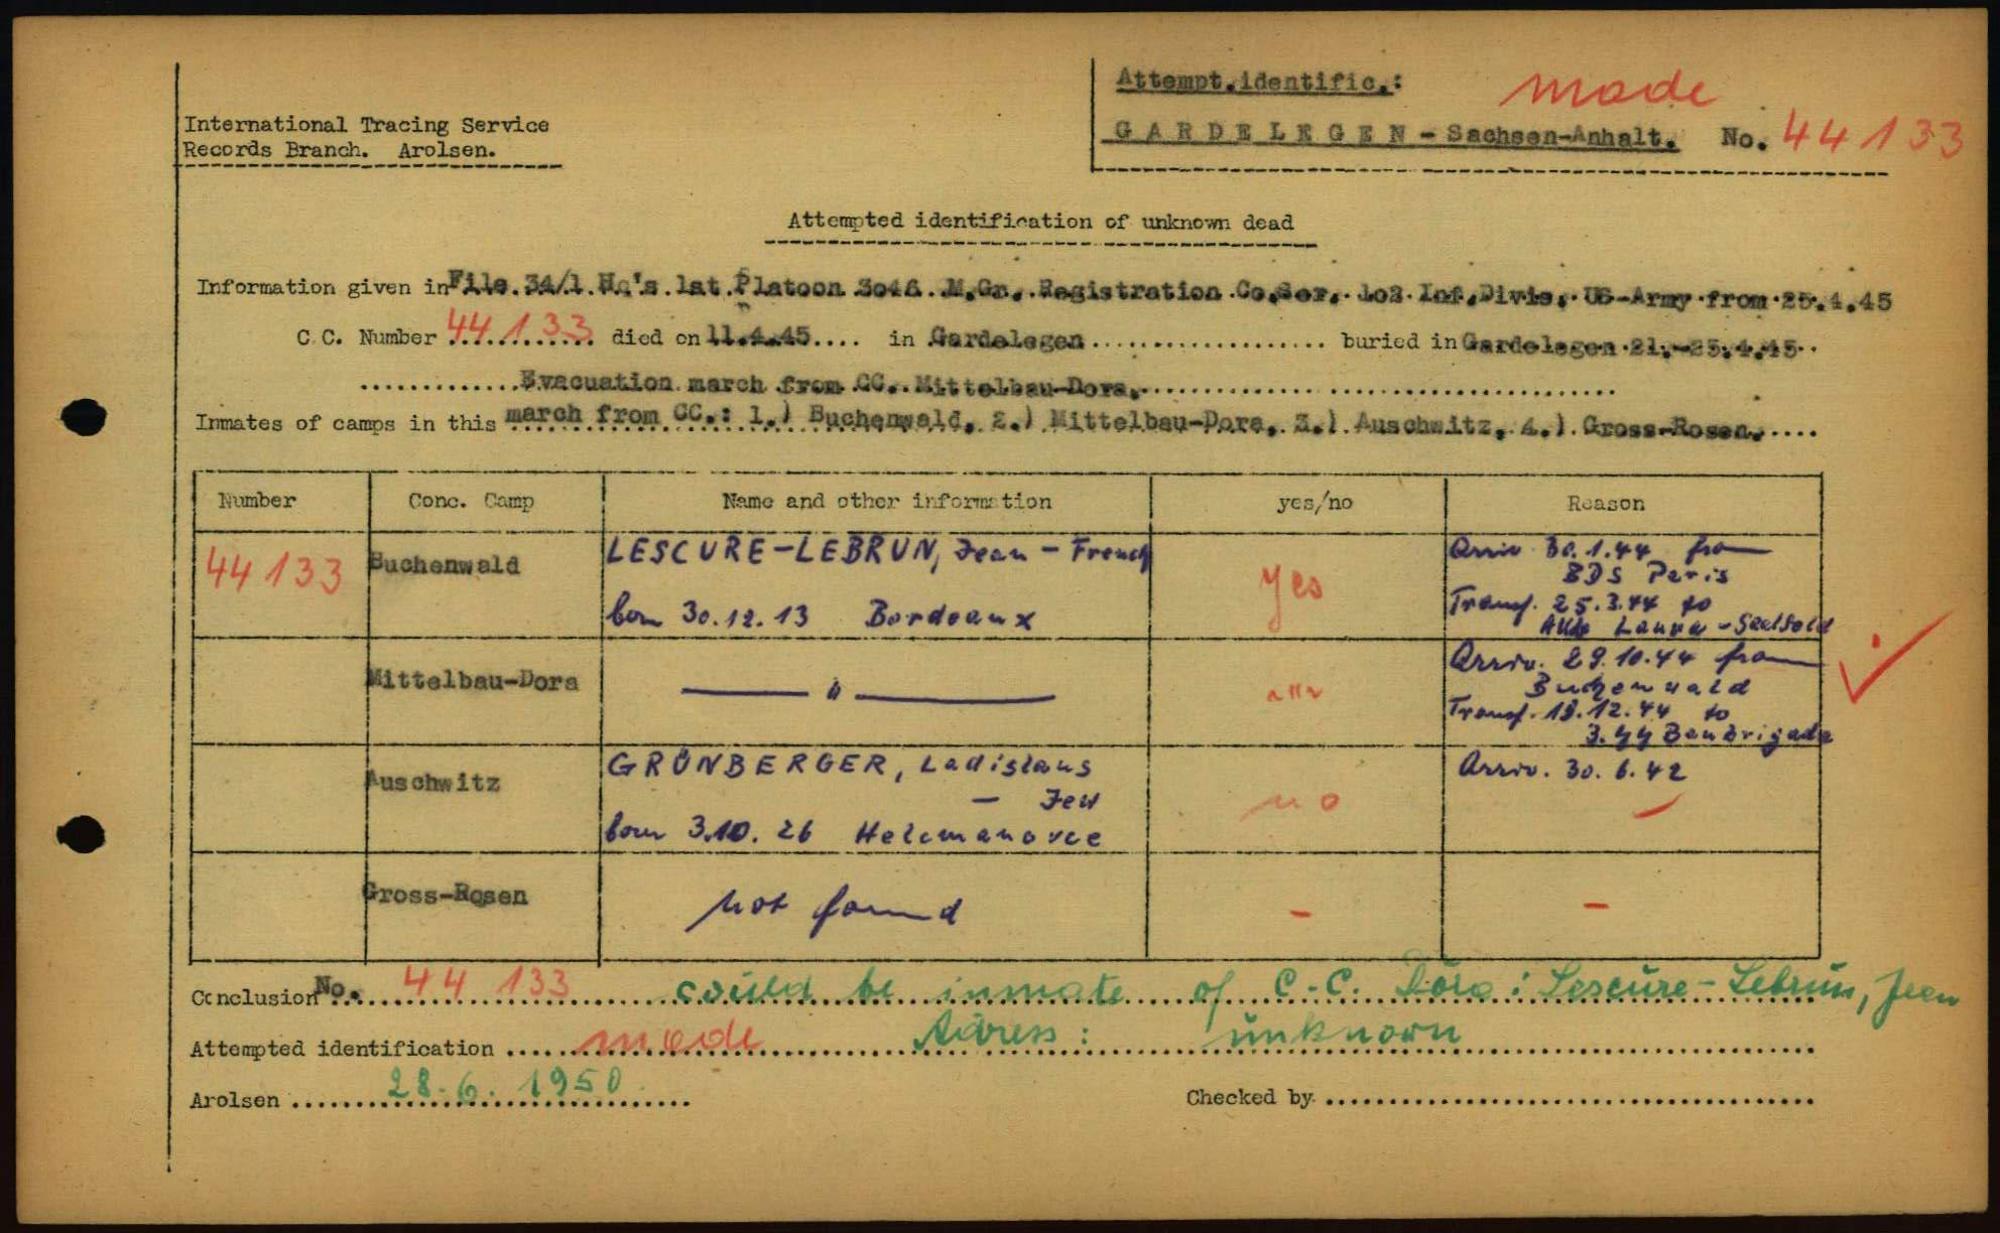 Attempt.identific.: made
International Tracing Service
Records Branch. Arolsen.
GARDELEGEN - Sachsen-Anhalt. No. 44133
Attempted identification of unknown dead
Information given in File 34/1 Hq's 1at Platoon 3046 M.Gr. Registration Co.Ser. 102 Inf.Divis. US-Army from 25.4.45
C.C. Number 44133 died on 11.4.45 in Gardelegen buried in Gardelegen 21.-25.4.45
Evacuation march from CC. Mittelbau-Dora.
Inmates of camps in this march from CC.: 1.) Buchenwald, 2.) Mittelbau-Dora, 3.) Auschwitz, 4.) Gross-Rosen.
Number Conc. Camp Name and other information yes/no Reason
44133 Buchenwald LESCURE-LEBRUN, Jean - French yes Arriv 30.1.44 from
BDS Paris
born 30.12.13 Bordeaux Transf. 25.3.44 to
AKdo Laura - Saalfeld
Mittelbau-Dora — " — -"- Arriv. 29.10.44 from
Buchenwald
Transf. 19.12.44 to
3. SS Baubrigade
Auschwitz GRÜNBERGER, Ladislaus no Arriv. 30.6.42
- Jew
born 3.10.26 Helcmanovce
Gross-Rosen not found - -
Conclusion No. 44 133 could be inmate of C.-C. Dora: Lescure-Lebrun, Jean
Attempted identification made Adress: unknown
Arolsen 28.6.1950 Checked by